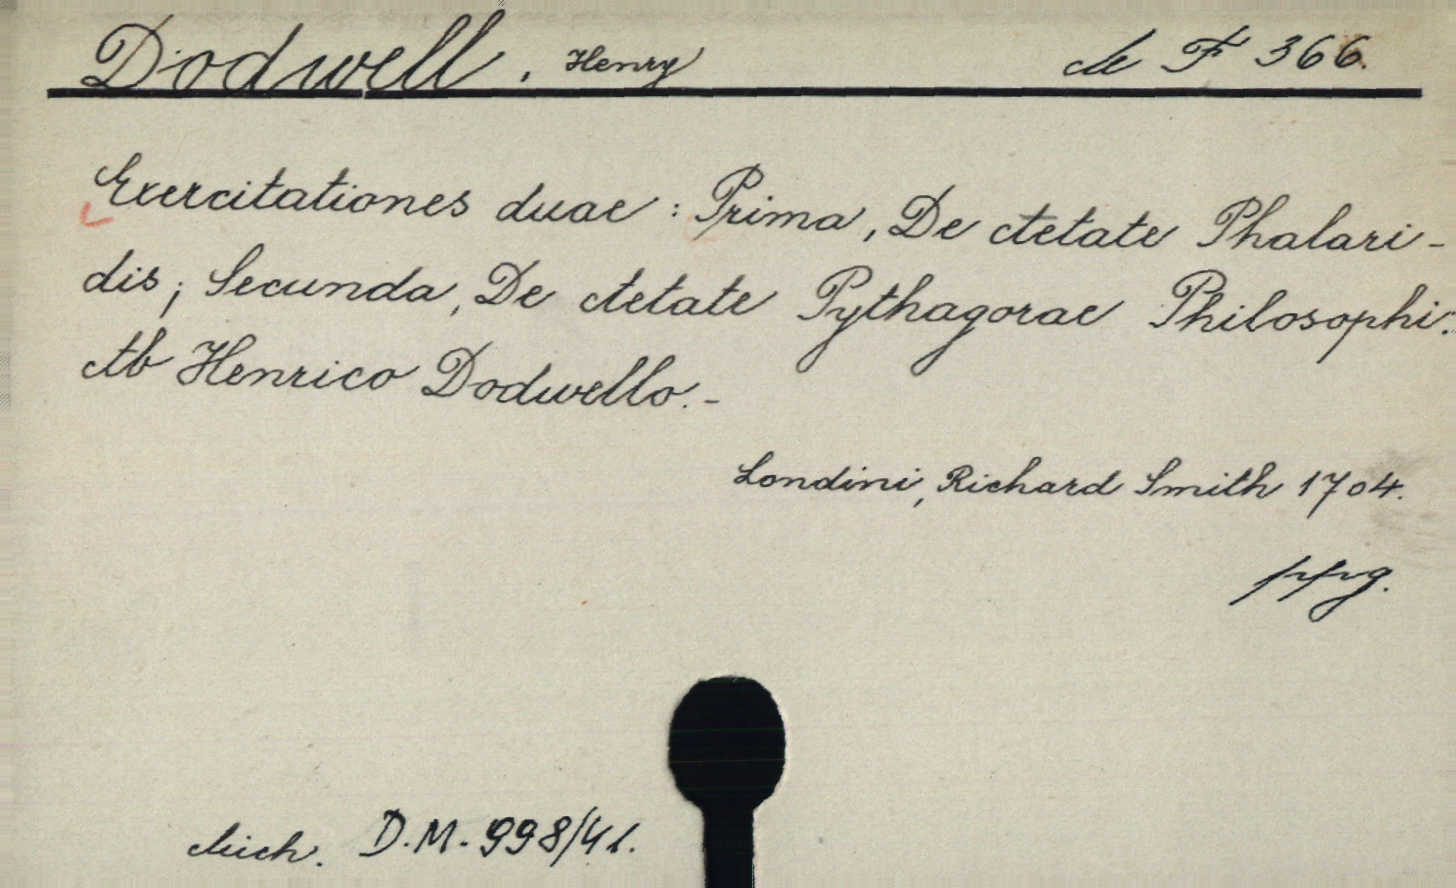 Dodwell, Henry
F 366.
Exercitationes duae : Prima, De Aetate Phalari-
dis; Secunda, De Aetate Pythagorae Philosophi.
Ab Henrico Dodwello.-
Londini, Richard Smith 1704.
D.M. 998/41.